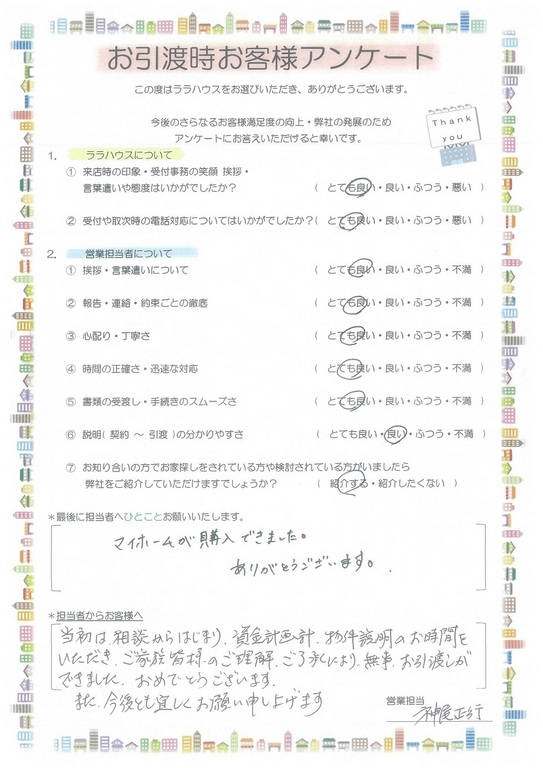 お引渡時お客様アンケート
この度はララハウスをお選びいただき、ありがとうございます。
今後のさらなるお客様満足度の向上・弊社の発展のため
アンケートにお答えいただけると幸いです。
Thank
you
1. ララハウスについて
① 来店時の印象・受付事務の笑顔 挨拶・
言葉遣いや態度はいかがでしたか? ( とても良い・良い・ふつう・悪い )
② 受付や取次時の電話対応についてはいかがでしたか?( とても良い・良い・ふつう・悪い )
2. 営業担当者について
① 挨拶・言葉遣いについて ( とても良い・良い・ふつう・不満 )
② 報告・連絡・約束ごとの徹底 ( とても良い・良い・ふつう・不満 )
③ 心配り・丁寧さ ( とても良い・良い・ふつう・不満 )
④ 時間の正確さ・迅速な対応 ( とても良い・良い・ふつう・不満 )
⑤ 書類の受渡し・手続きのスムーズさ ( とても良い・良い・ふつう・不満 )
⑥ 説明( 契約 ~ 引渡 )の分かりやすさ ( とても良い・良い・ふつう・不満 )
⑦ お知り合いの方でお家探しをされている方や検討されている方がいましたら
弊社をご紹介していただけますでしょうか? ( 紹介する・紹介したくない )
*最後に担当者へひとことお願いいたします。
マイホームが購入できました。
ありがとうございます。
*担当者からお客様へ
当初は、相談からはじまり、資金計画計、物件説明のお時間を
いただき、ご家族皆様のご理解、ご了承により、無事、お引渡しが
できました。おめでとうございます。
また、今後とも宜しくお願い申し上げます
営業担当
神尾正行